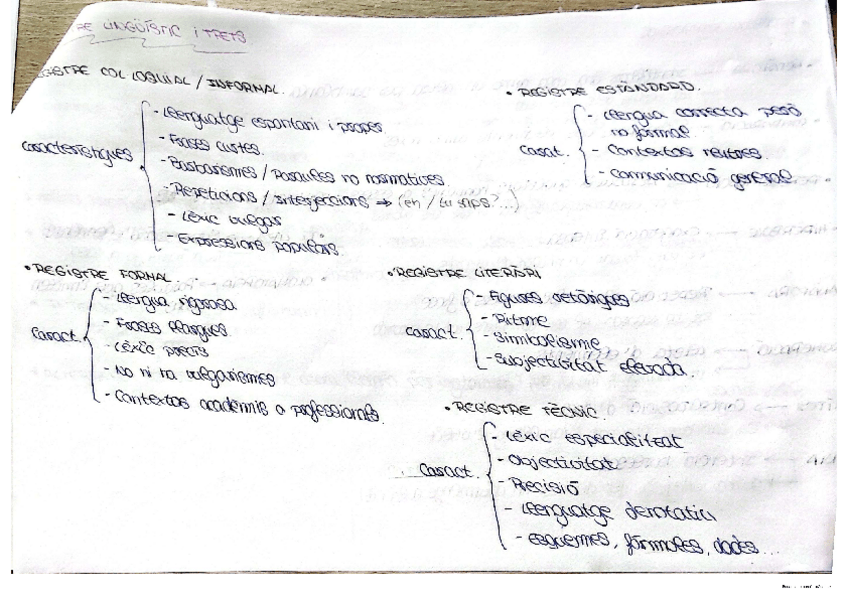 RE LINGÜÍSTIC i TRETS
GISTRE COL·LOQUIAL / INFORMAL.
Característiques
- Llenguatge espontani i proper
- Frases curtes.
- Barbarismes / Paraules no normatives.
- Repeticions / Interjeccions → (eh / tu saps?...)
- Lèxic vulgar
- Expressions populars.
• REGISTRE ESTÀNDARD.
Caract.
- Llengua correcta però
no formal
- Contextos neutres.
- Comunicació general
• REGISTRE FORMAL
Caract.
- Llengua rigorosa
- Frases llargues.
- Lèxic precís
- No hi ha vulgarismes
- Contextos acadèmics o professionals.
• REGISTRE LITERARI
Caract.
- Figures retòriques
- Ritme
- Simbolisme
- Subjectivitat elevada.
• REGISTRE TÈCNIC
Caract.
- Lèxic especialitzat
- Objectivitat
- Precisió
- Llenguatge denotatiu
- esquemes, fórmules, dades...